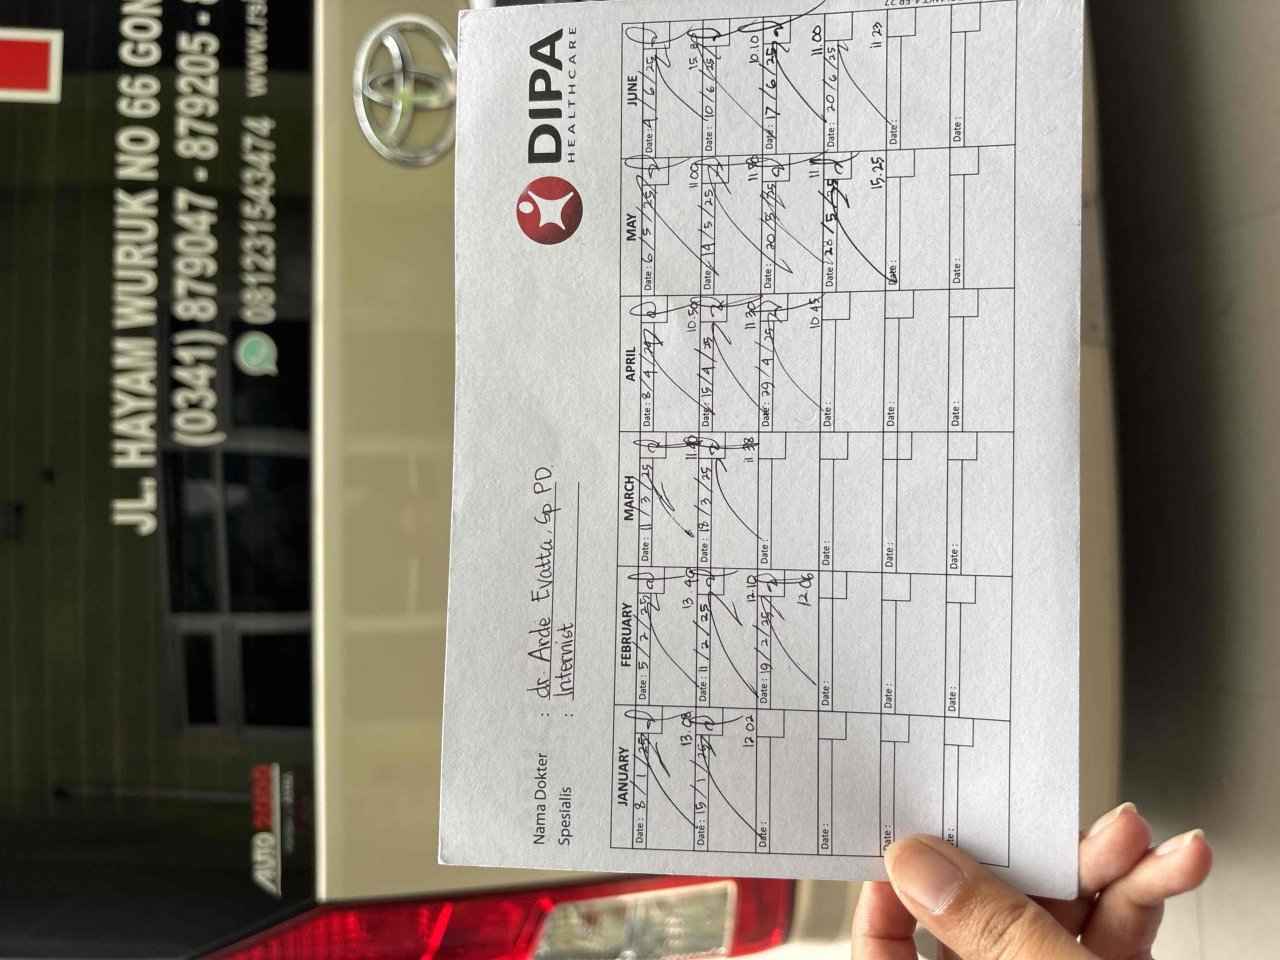 JL. HAYAM WURUK NO 66 GON
(0341) 879047 - 879205 - 8
081231543474 www.rsi
AUTO
DIPA
HEALTHCARE
Nama Dokter : dr Arde Evatta, Sp PD
Spesialis : Internist
JANUARY FEBRUARY MARCH APRIL MAY JUNE
Date: 8 / 1 / 25 Date: 5 / 2 / 25 Date: 11 / 3 / 25 Date: 8 / 4 / Date: 6 / 5 / 25 Date: 4 / 6 / 25
13.08 13.40 10.50 11.00
Date: 15 / 1 / 25 Date: 11 / 2 / 25 Date: 18 / 3 / 25 Date: 15 / 4 / 25 Date: 14 / 5 / 25 Date: 10 / 6 / 25
12.02 12.10 11.38 11.30 10.10
Date: Date: 19 / 2 / 25 Date: Date: 29 / 4 / 25 Date: 20 / 5 / 25 Date: 17 / 6 / 25
12.06 10.45 11.00
Date: Date: Date: Date: Date: 28 / 5 / 25 Date: 20 / 6 / 25
15.25 11.23
Date: Date: Date: Date: Date: Date:
Date: Date: Date: Date: Date: